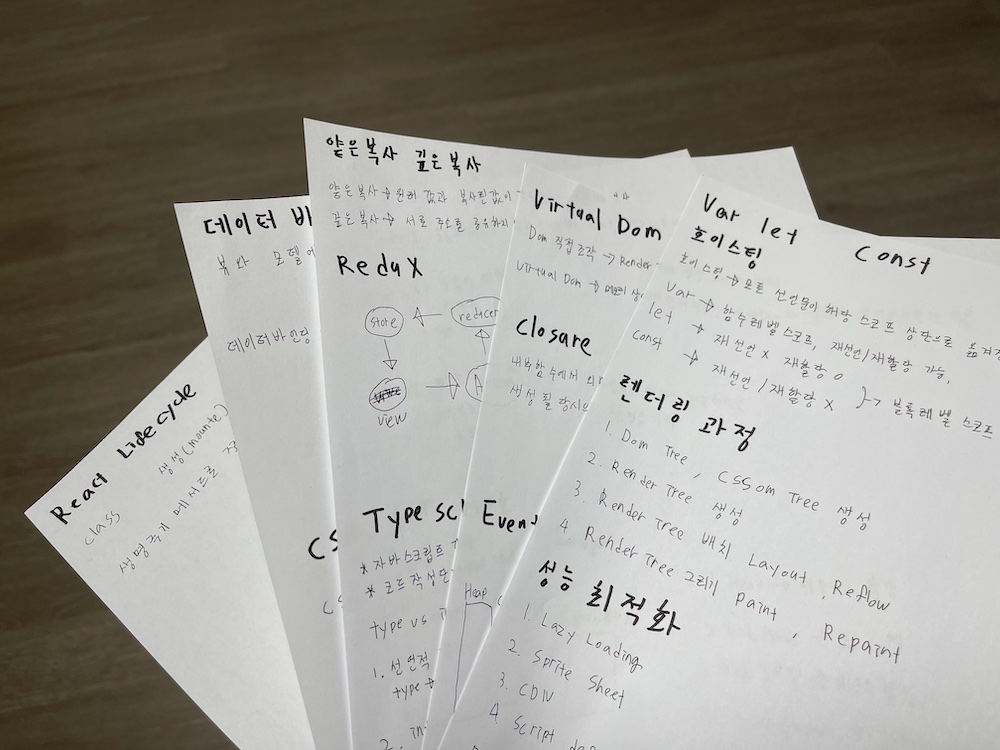 React Lifecycle
class 생성(mounte)
생명주기 메서드로
데이터 바
뷰와 모델에
데이터바인딩
CS
얕은복사 깊은복사
얕은복사→원래 값과 복사된값이
깊은복사→ 서로 주소를 공유하지
Redux
store
reducer
view
Type sc
* 자바스크립트
* 코드작성단
type vs
1. 선언적
type →
2. in
Virtual Dom
Dom 직접조작 → Render
Virtual Dom → 메모리 상
Closare
내부함수에서 외
생성될 당시의
Even
Heap
Var let const
호이스팅
호이스팅 → 모든 선언문이 해당 스코프 상단으로 옮겨진
Var → 함수레벨스코프, 재선언/재할당 가능,
let → 재선언 X 재할당 O
const → 재선언/재할당 X }→ 블록레벨 스코프
렌더링 과정
1. Dom Tree, CSSom Tree 생성
2. Render Tree 생성
3. Render Tree 배치 Layout, Reflow
4. Render Tree 그리기 Paint, Repaint
성능 최적화
1. Lazy Loading
2. Sprite Sheet
3. CDN
4. Script